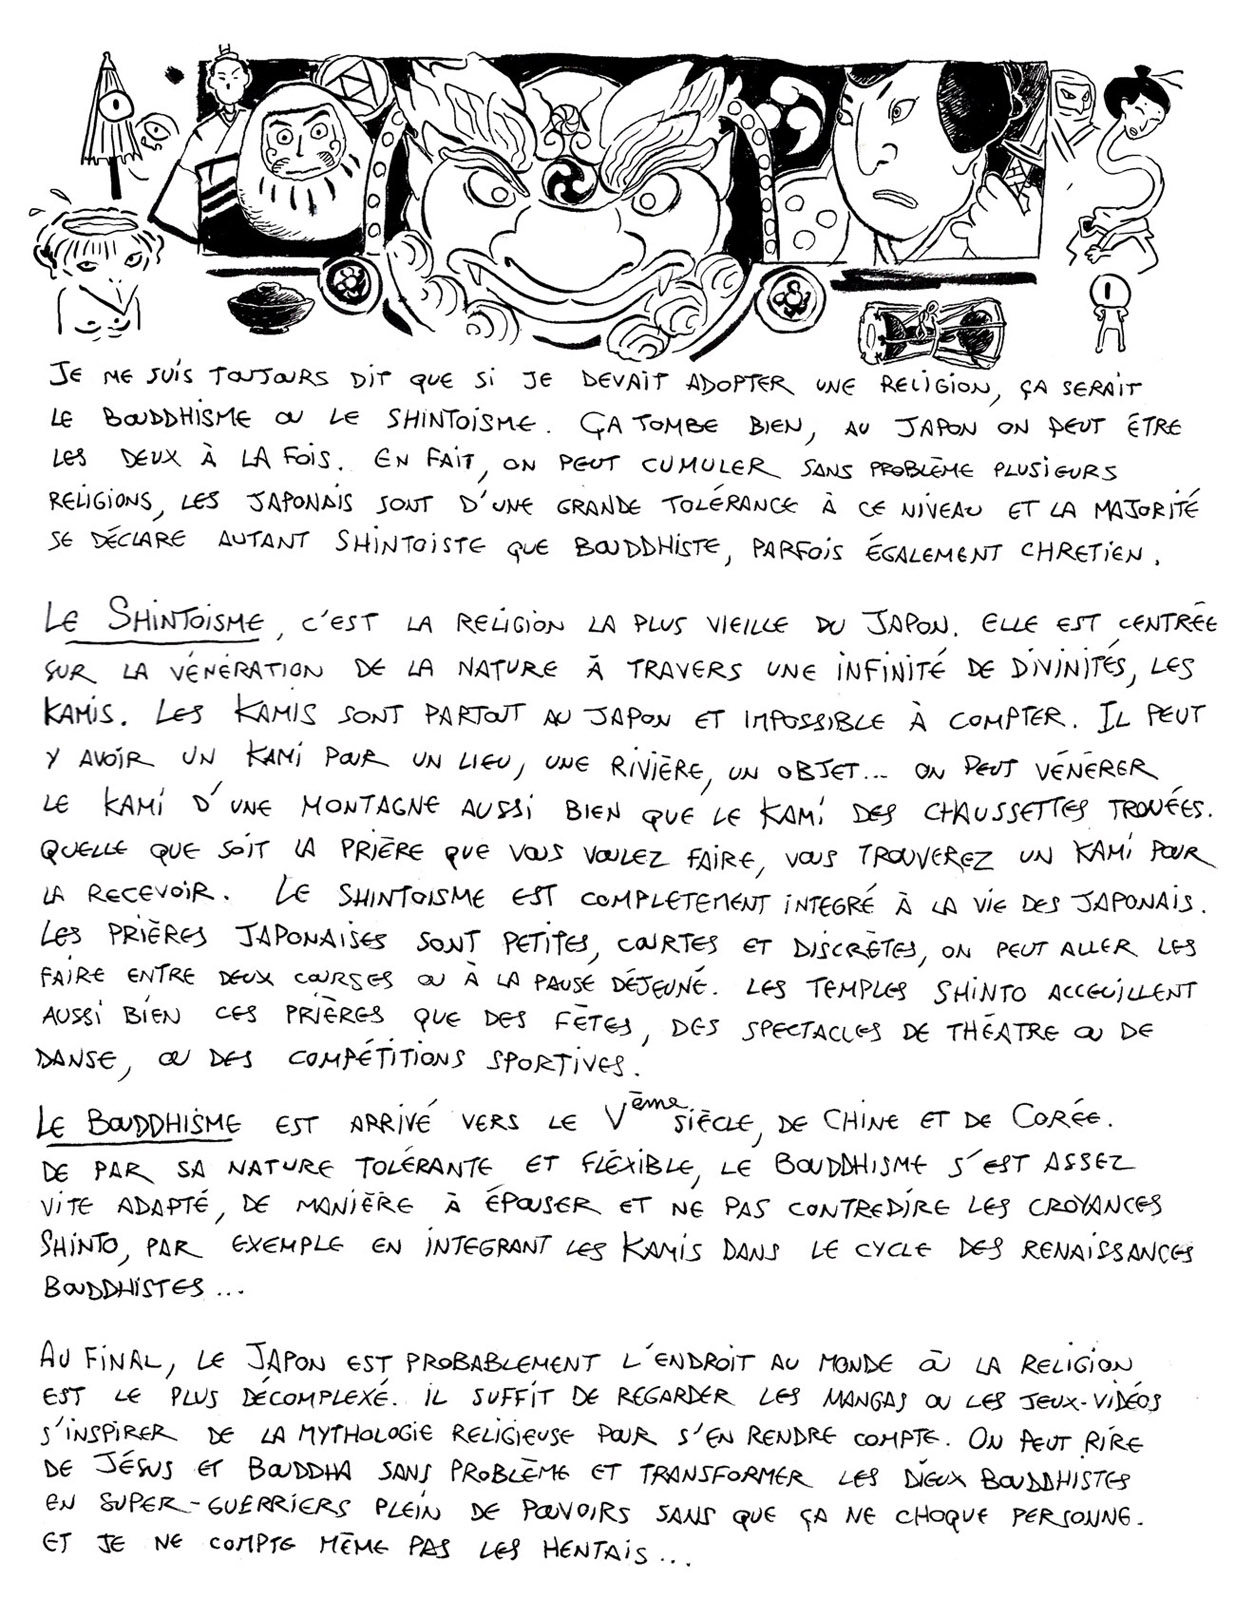 JE ME SUIS TOUJOURS DIT QUE SI JE DEVAIT ADOPTER UNE RELIGION, ÇA SERAIT
LE BOUDDHISME OU LE SHINTOISME. ÇA TOMBE BIEN, AU JAPON ON PEUT ÊTRE
LES DEUX À LA FOIS. EN FAIT, ON PEUT CUMULER SANS PROBLÈME PLUSIEURS
RELIGIONS, LES JAPONAIS SONT D'UNE GRANDE TOLÉRANCE À CE NIVEAU ET LA MAJORITÉ
SE DÉCLARE AUTANT SHINTOISTE QUE BOUDDHISTE, PARFOIS ÉGALEMENT CHRETIEN.
LE SHINTOISME, C'EST LA RELIGION LA PLUS VIEILLE DU JAPON. ELLE EST CENTRÉE
SUR LA VÉNÉRATION DE LA NATURE À TRAVERS UNE INFINITÉ DE DIVINITÉS, LES
KAMIS. LES KAMIS SONT PARTOUT AU JAPON ET IMPOSSIBLE À COMPTER. IL PEUT
Y AVOIR UN KAMI POUR UN LIEU, UNE RIVIÈRE, UN OBJET... ON PEUT VÉNÉRER
LE KAMI D'UNE MONTAGNE AUSSI BIEN QUE LE KAMI DES CHAUSSETTES TROUÉES.
QUELLE QUE SOIT LA PRIÈRE QUE VOUS VOULEZ FAIRE, VOUS TROUVEREZ UN KAMI POUR
LA RECEVOIR. LE SHINTOISME EST COMPLETEMENT INTEGRÉ À LA VIE DES JAPONAIS.
LES PRIÈRES JAPONAISES SONT PETITES, COURTES ET DISCRÈTES, ON PEUT ALLER LES
FAIRE ENTRE DEUX COURSES OU À LA PAUSE DÉJEUNÉ. LES TEMPLES SHINTO ACCEUILLENT
AUSSI BIEN CES PRIÈRES QUE DES FÊTES, DES SPECTACLES DE THÉATRE OU DE
DANSE, OU DES COMPÉTITIONS SPORTIVES.
LE BOUDDHISME EST ARRIVÉ VERS LE Vème SIÈCLE, DE CHINE ET DE CORÉE.
DE PAR SA NATURE TOLÉRANTE ET FLÉXIBLE, LE BOUDDHISME S'EST ASSEZ
VITE ADAPTÉ, DE MANIÈRE À ÉPOUSER ET NE PAS CONTREDIRE LES CROYANCES
SHINTO, PAR EXEMPLE EN INTEGRANT LES KAMIS DANS LE CYCLE DES RENAISSANCES
BOUDDHISTES...
AU FINAL, LE JAPON EST PROBABLEMENT L'ENDROIT AU MONDE OÙ LA RELIGION
EST LE PLUS DÉCOMPLEXÉ. IL SUFFIT DE REGARDER LES MANGAS OU LES JEUX-VIDÉOS
S'INSPIRER DE LA MYTHOLOGIE RELIGIEUSE POUR S'EN RENDRE COMPTE. ON PEUT RIRE
DE JÉSUS ET BOUDDHA SANS PROBLÈME ET TRANSFORMER LES DIEUX BOUDDHISTES
EN SUPER-GUERRIERS PLEIN DE POUVOIRS SANS QUE ÇA NE CHOQUE PERSONNE.
ET JE NE COMPTE MÊME PAS LES HENTAIS...